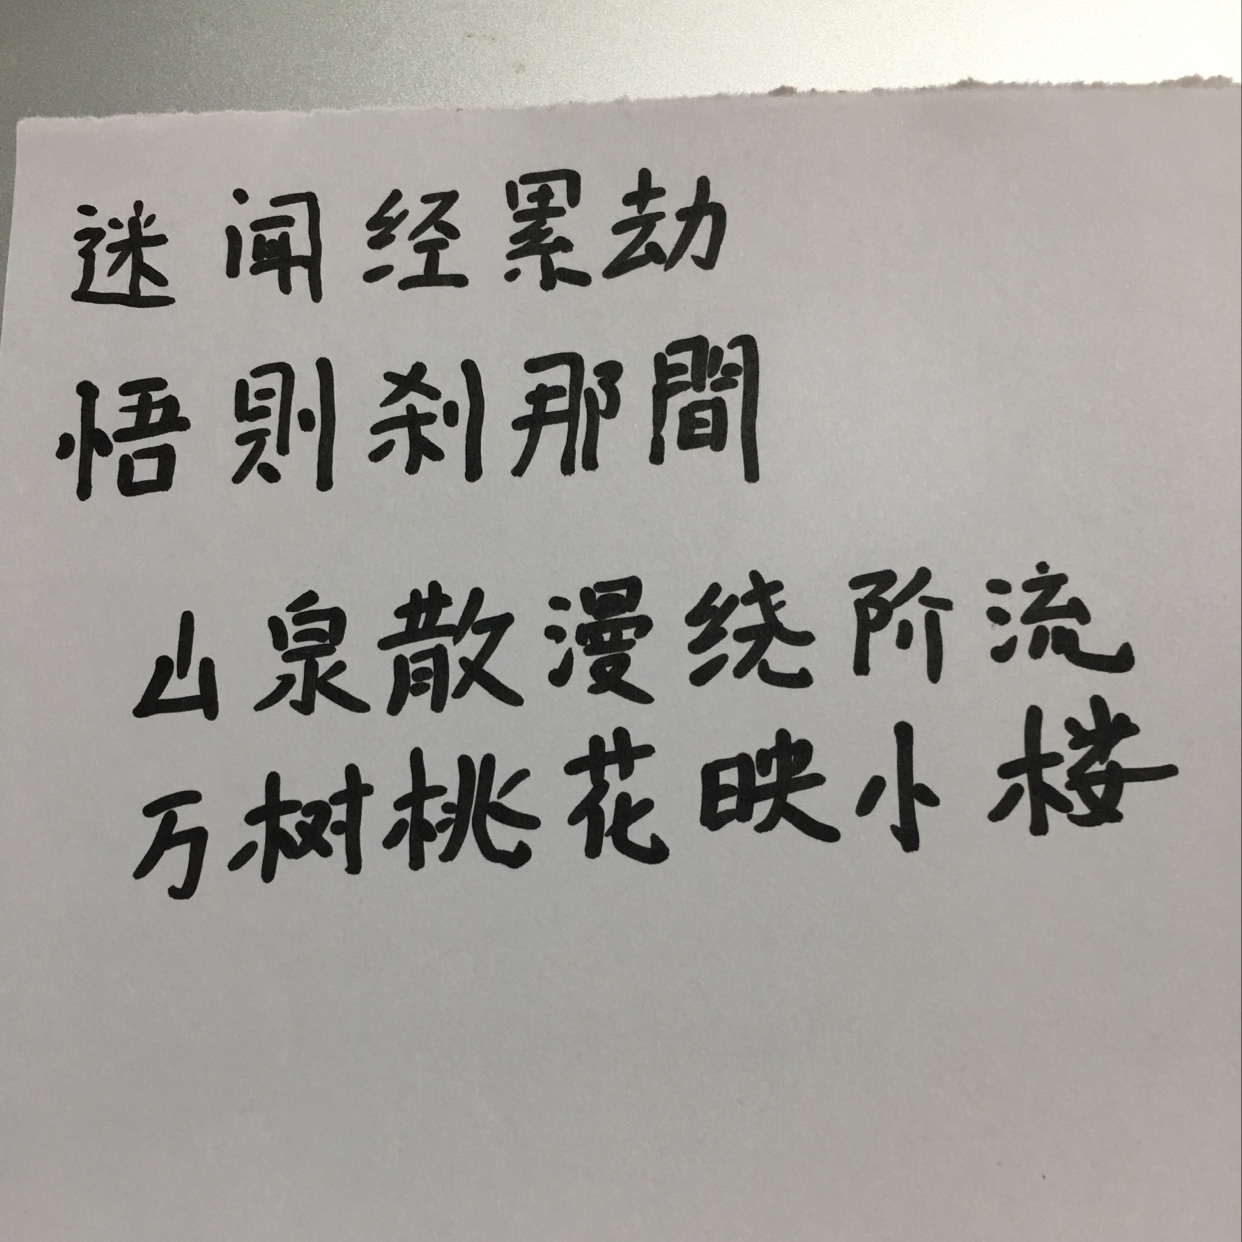 迷闻经累劫
悟则刹那間
山泉散漫绕阶流
万树桃花映小楼